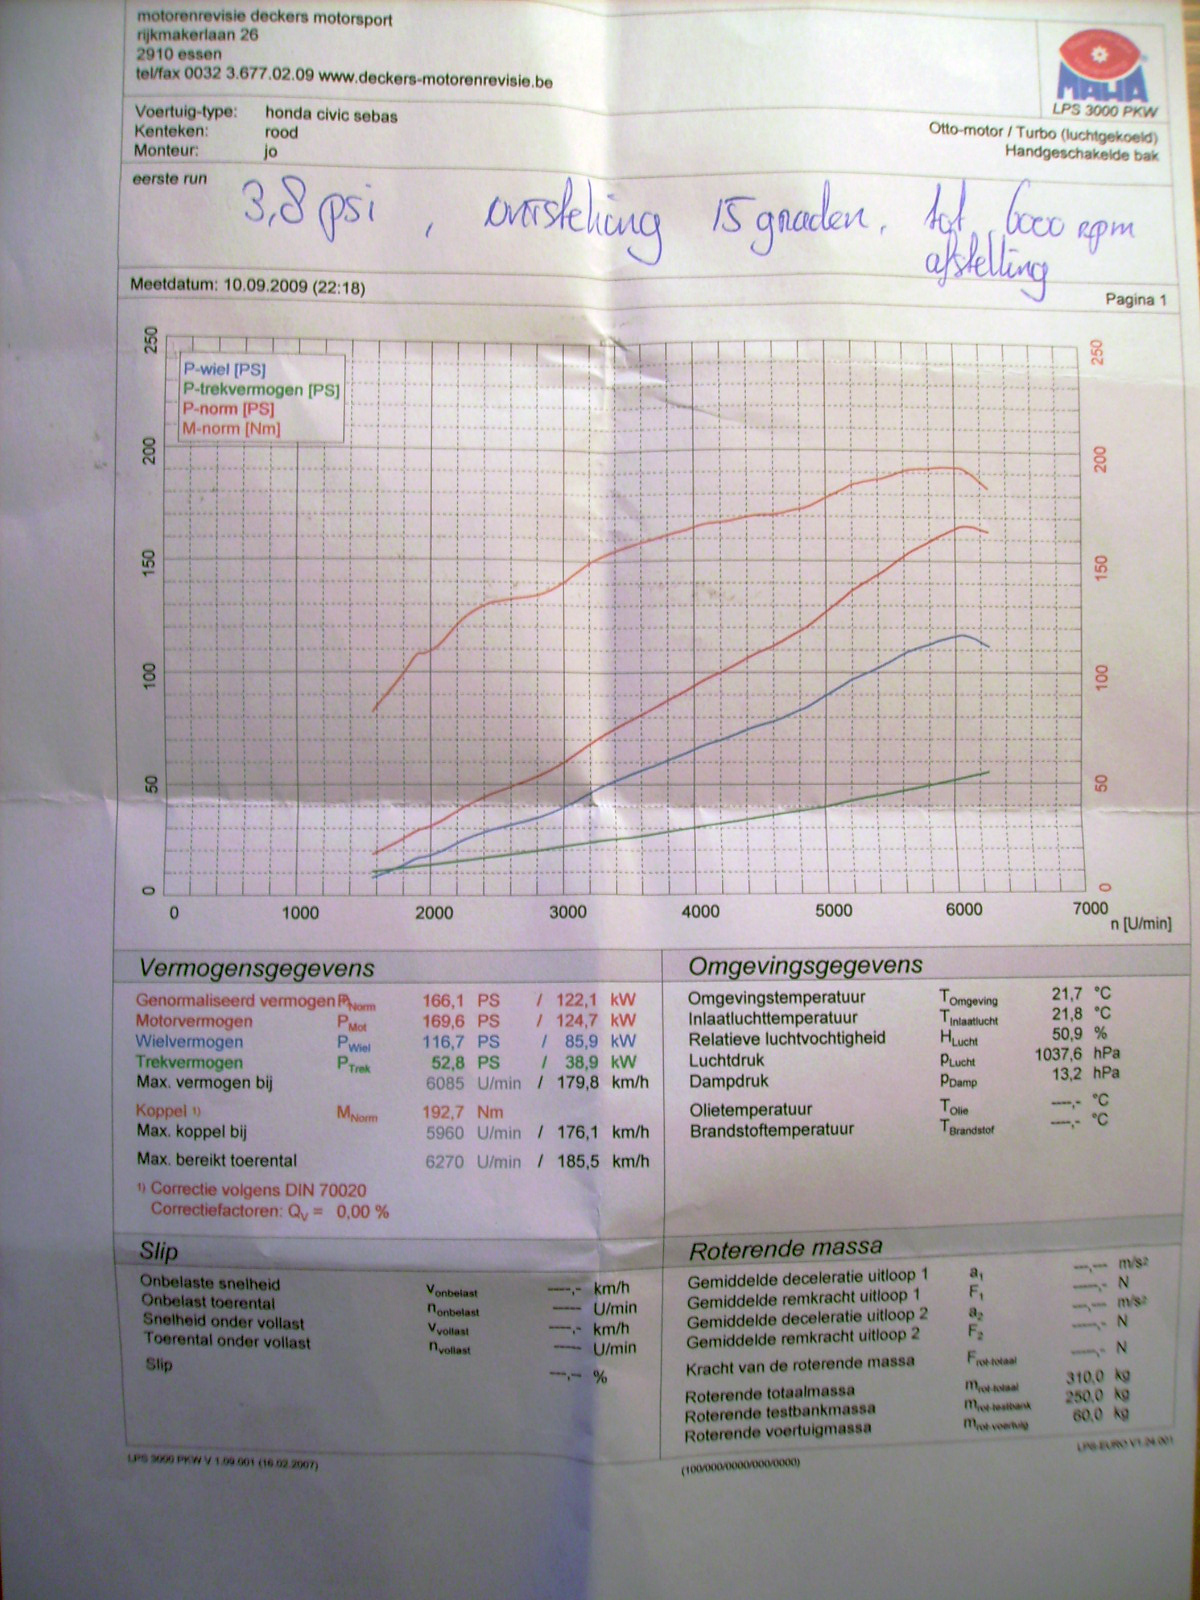 motorenrevisie deckers motorsport
rijkmakerlaan 26
2910 essen
tel/fax 0032 3.677.02.09 www.deckers-motorenrevisie.be
MAHA
LPS 3000 PKW
Voertuig-type: honda civic sebas
Kenteken: rood
Monteur: jo
Otto-motor / Turbo (luchtgekoeld)
Handgeschakelde bak
eerste run
3,8 psi , 15 graden, tot 6000 rpm
afstelling
Meetdatum: 10.09.2009 (22:18)
Pagina 1
P-wiel [PS]
P-trekvermogen [PS]
P-norm [PS]
M-norm [Nm]
250 250
200 200
150 150
100 100
50 50
0 0
0 1000 2000 3000 4000 5000 6000 7000
n [U/min]
Vermogensgegevens
Genormaliseerd vermogen PNorm 166,1 PS / 122,1 kW
Motorvermogen PMot 169,6 PS / 124,7 kW
Wielvermogen PWiel 116,7 PS / 85,9 kW
Trekvermogen PTrek 52,8 PS / 38,9 kW
Max. vermogen bij 6085 U/min / 179,8 km/h
Koppel 1) MNorm 192,7 Nm
Max. koppel bij 5960 U/min / 176,1 km/h
Max. bereikt toerental 6270 U/min / 185,5 km/h
1) Correctie volgens DIN 70020
Correctiefactoren: QV = 0,00 %
Omgevingsgegevens
Omgevingstemperatuur TOmgeving 21,7 °C
Inlaatluchttemperatuur TInlaatlucht 21,8 °C
Relatieve luchtvochtigheid HLucht 50,9 %
Luchtdruk pLucht 1037,6 hPa
Dampdruk pDamp 13,2 hPa
Olietemperatuur TOlie ----,- °C
Brandstoftemperatuur TBrandstof ----,- °C
Slip
Onbelaste snelheid Vonbelast ----,- km/h
Onbelast toerental nonbelast ---- U/min
Snelheid onder vollast Vvollast ----,- km/h
Toerental onder vollast nvollast ---- U/min
Slip ---,-- %
Roterende massa
Gemiddelde deceleratie uitloop 1 a1 ---,--- m/s²
Gemiddelde remkracht uitloop 1 F1 ----,- N
Gemiddelde deceleratie uitloop 2 a2 ---,--- m/s²
Gemiddelde remkracht uitloop 2 F2 ----,- N
Kracht van de roterende massa Frot-totaal ----,- N
Roterende totaalmassa mrot-totaal 310,0 kg
Roterende testbankmassa mrot-testbank 250,0 kg
Roterende voertuigmassa mrot-voertuig 60,0 kg
LPS 3000 PKW V 1.09.001 (16.02.2007)
(100/000/0000/000/0000)
LPS-EURO V1.24.001